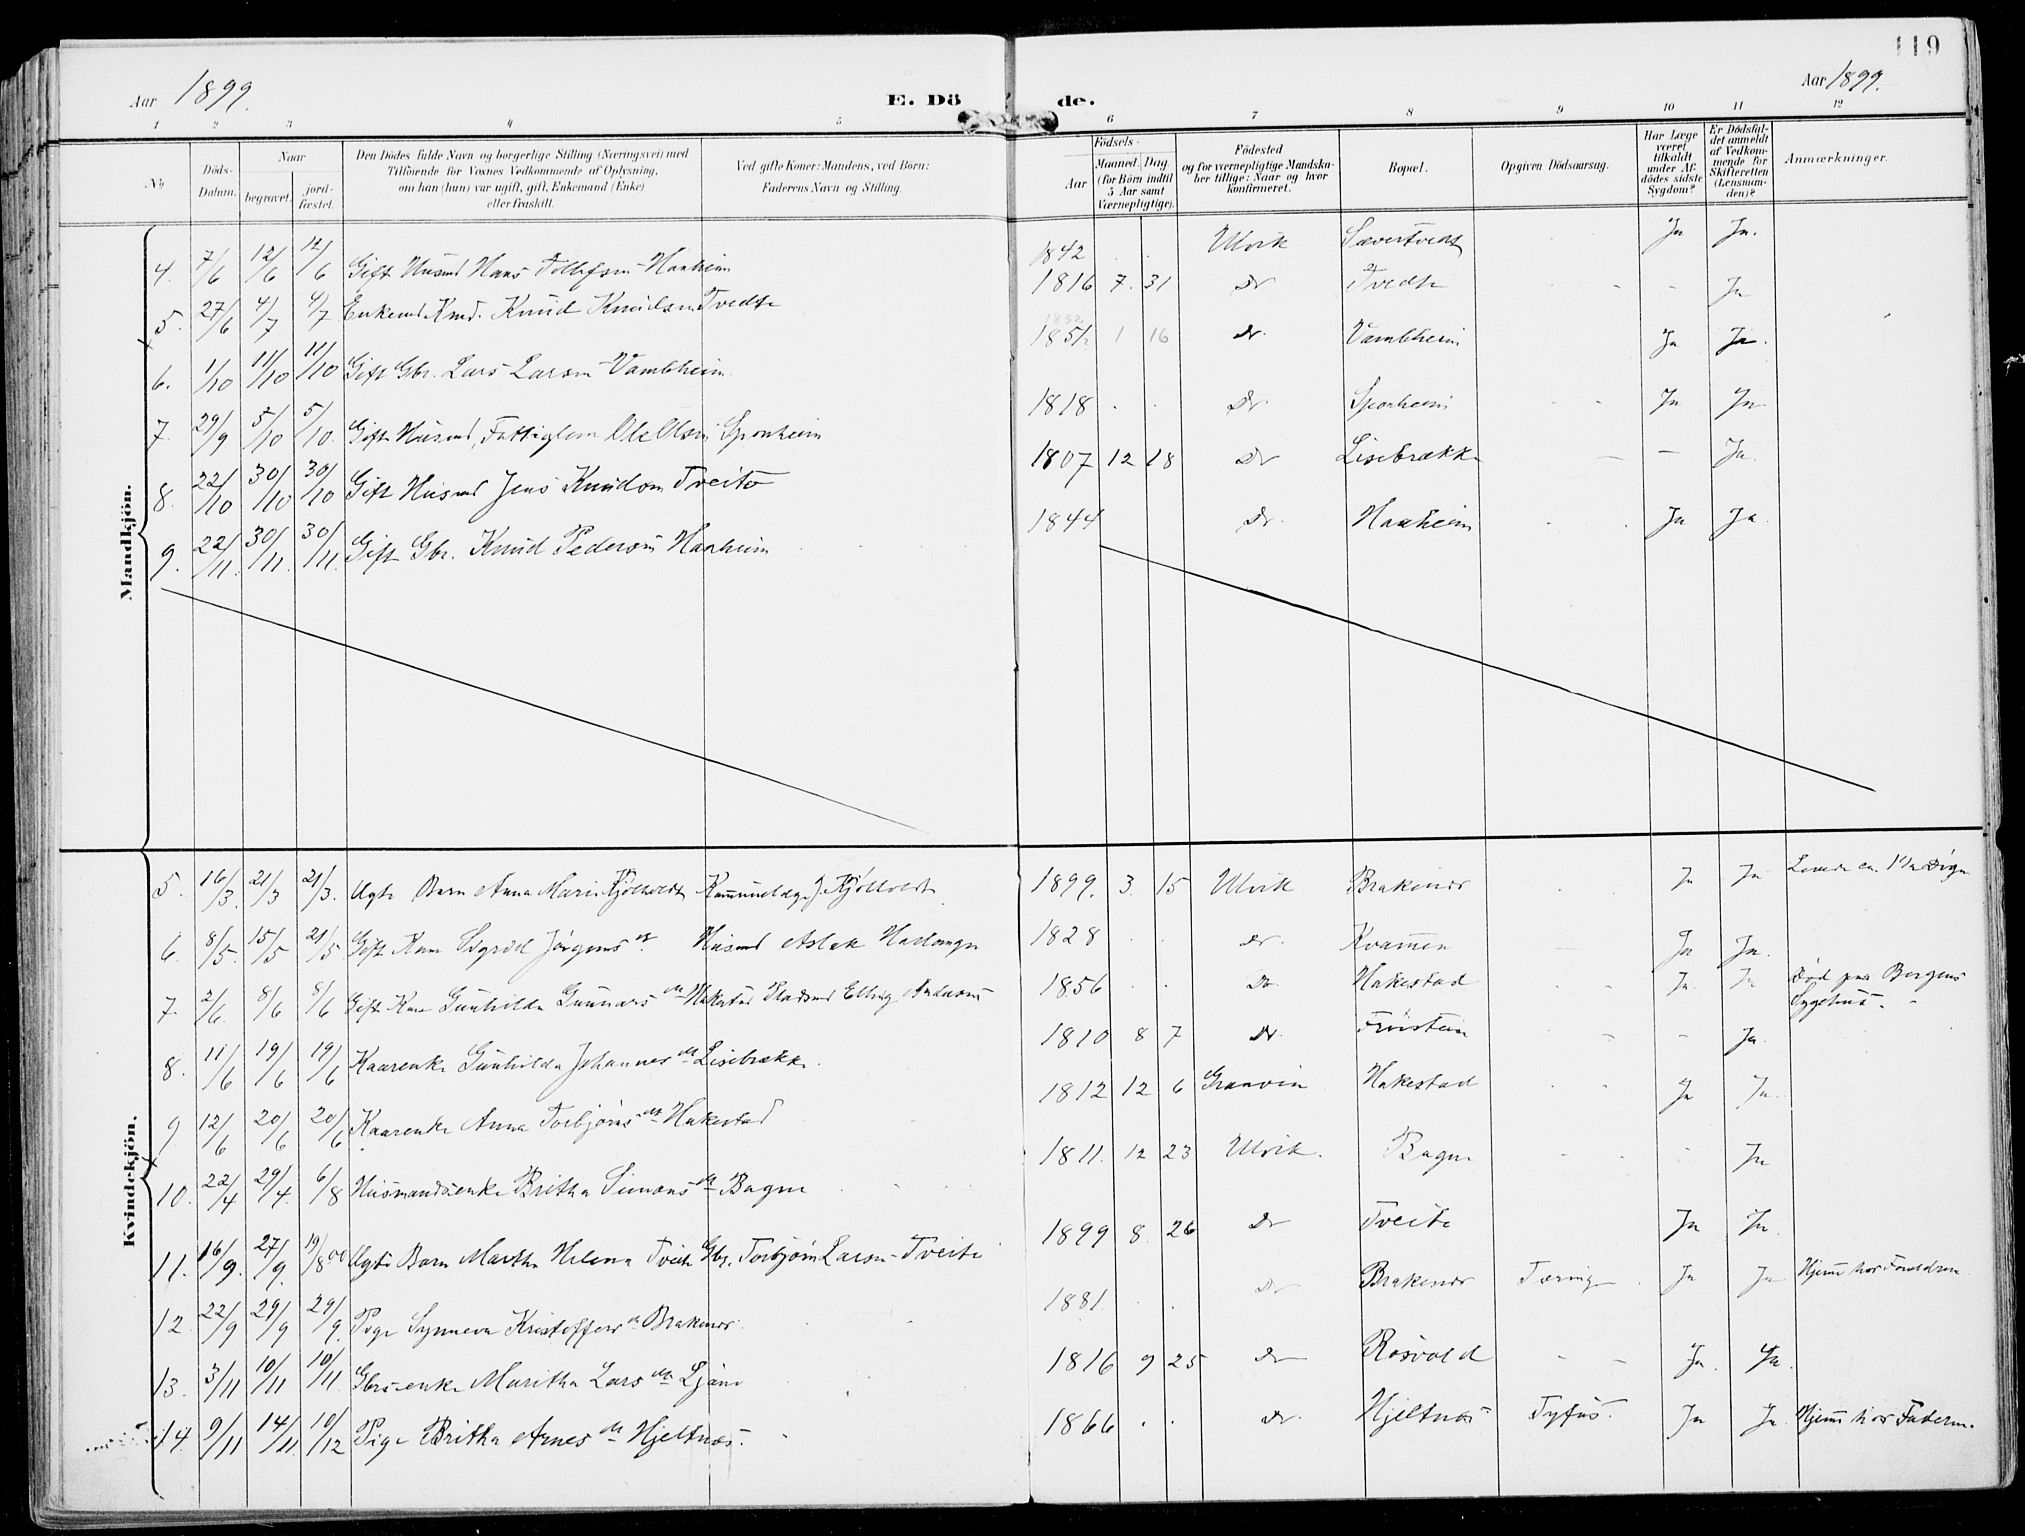 119
Aar 1899.
E. Döde.
Aar 1899.
1 2 3 4 5 6 7 8 9 10 11 12
No
Döds-Datum.
Naar
begravet.
jord-fæstet.
Den Dödes fulde Navn og borgerlige Stilling (Næringsvei) med
Tilföiende for Voxnes Vedkommende af Oplysning,
om han (hun) var ugift, gift, Enkemand (Enke)
eller fraskilt.
Ved gifte Koner: Mandens, ved Börn:
Faderens Navn og Stilling.
Födsels-
Aar
Maaned. Dag
(for Börn indtil
5 Aar samt
Værnepligtige).
Födested
og for værnepligtige Mandska-
ber tillige: Naar og hvor
konfirmeret.
Bopæl.
Opgiven Dödsaarsag.
Har Læge
været
tilkaldt
under Af-
dödes sidste
Sygdom?
Er Dödsfal-
det anmeldt
af Vedkom-
mende for
Skifteretten
(Lensman-
den)?
Anmærkninger.
Mandkjön.
4. 7/6 12/6 12/6 Gift Husmd Hans Tollefsen Hanheim 1842 . . Ulvik Sævertvedt Ja Ja.
5. 27/6 4/7 4/7 Enkemd Knud Knudsen Tvedte 1816 7. 31 Do Tvedte - - Ja
6. 1/10 11/10 11/10 Gift Gbr. Lars Larsen Vambheim 1852 1 16 do. Vambheim Ja Ja.
7. 29/9 5/10 5/10. Gift Husmd, Fattiglem Ole Olsen Sponheim 1818 . . Do Sponheim - - Ja Ja
8. 22/10 30/10 30/10 Gift Husmd Jens Knudsen Tveito 1807 12 18 Do Lisebrække - - Ja.
9. 22/11. 30/11. 30/11. Gift Gbr. Knud Pedersen Hanheim 1844 Do. Hanheim Ja Ja.
Kvindekjön.
5. 16/3. 21/3 21/3. Ægte Barn Anna Marie Kjöltvedt J. Kjöltvedt 1899. 3. 15 Ulvik Brakenes Ja Ja Levede ca. 1 1/2 Dögn
6. 8/5. 15/5 21/5 Gift Kone Sigrid Jörgensdr Husmd Aslak 1828 . . do. Kvammen Ja Ja.
7. 2/6. 8/6 8/6 Gift Kone Gunhilda Gunnarsdr Hakestad Pladsmd Elling Andersen 1856 . . Do Hakestad Ja. Ja Död paa Bergens
Sygehus.
8. 11/6 19/6 19/6 Kaarenke Gunhilda Johannesdr Lisebrækk. 1810 8 7 Do. - - Ja.
9 12/6 20/6 20/6 Kaarenke Anna Torbjörnsdr Hakestad 1812 12 6 Granvin Hakestad Ja Ja.
10. 22/4 29/4. 6/8 Husmandsenke Britha Simonsdr Bagne 1811. 12 23 Ulvik. Bagne - Ja
11. 16/9. 27/9. 19/8 00 Ægte Barn Martha Helena Tveite Gbr. Torbjörn Larsen Tveite 1899 8. 26 Do Tveite Ja Ja
12 22/9 29/9 29/9. Pige Synneva Kristoffersdr Brakenes 1881 . . Do Brakenes Tæring Ja Ja Hjem hos Foreldrene
13. 3/11 10/11 10/11. Gbrsenke Maritha Larsdr Ljöno 1816 9 25 Do Rösvold - - Ja. Ja.
14. 9/11 14/11. 10/12 Pige Britha Arnesdr Hjeltnæs. 1866 . . Do. Hjeltnæs Tyfus. Ja Ja. Hjem hos Faderen.